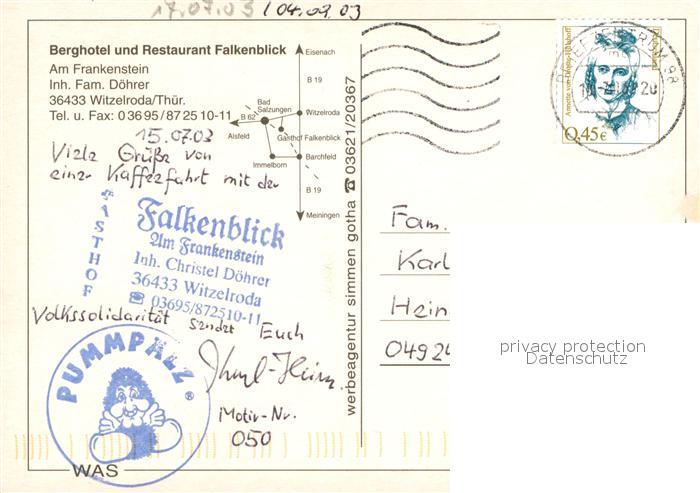 17.07.03 / 04.09.03
Berghotel und Restaurant Falkenblick
Am Frankenstein
Inh. Fam. Döhrer
36433 Witzelroda/Thür.
Tel. u. Fax: 03695/872510-11
Eisenach
B 19
Bad
Salzungen
Witzelroda
B 62
Alsfeld
Gasthof Falkenblick
Immelborn
Barchfeld
B 19
Meiningen
werbeagentur simmen gotha ☎ 03621/20367
Annette von Droste-Hülshoff
Deutschland
0,45€
BRIEFZENTRUM 98
15.07.03
Viele Grüße von
einer Kaffeefahrt mit der
GASTHOF
Falkenblick
Am Frankenstein
Inh. Christel Döhrer
36433 Witzelroda
☎ 03695/872510-11
Volkssolidarität sendet Euch
Karl-Heinz.
Motiv-Nr.
050
PUMMPÄLZ ®
WAS
Fam.
Karl
Hein
04924
privacy protection
Datenschutz